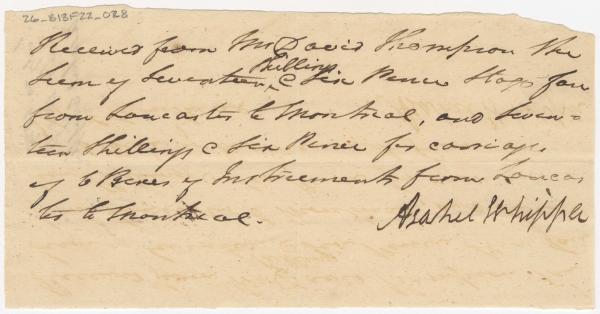 26-B13F22_028
Received from Mr David Thompson the
Sum of Seventeen Shillings & Six Pence Stage fare
from Lancaster to Montreal, and Seven-
teen Shillings & Six Pence for carriage
of 6 Boxes of Instruments from Lancas
ter to Montreal.
Asahel Whipple